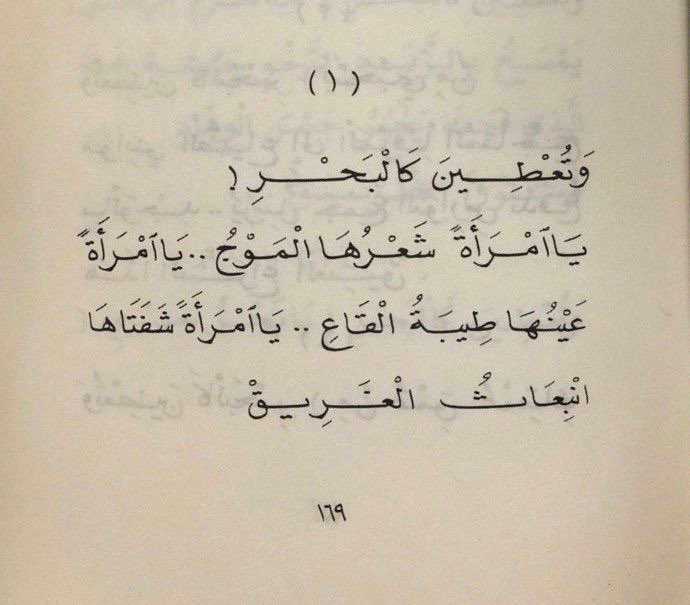 (١)
وَتُعْطِينَ كَالْبَحْرِ !
يَا ٱمْرَأَةً شَعْرُهَا الْمَوْجُ .. يَا ٱمْرَأَةً
عَيْنُهَا طِيبَةُ الْقَاعِ .. يَا ٱمْرَأَةً شَفَتَاهَا
انْبِعَاثُ الْغَرِيقْ
١٦٩